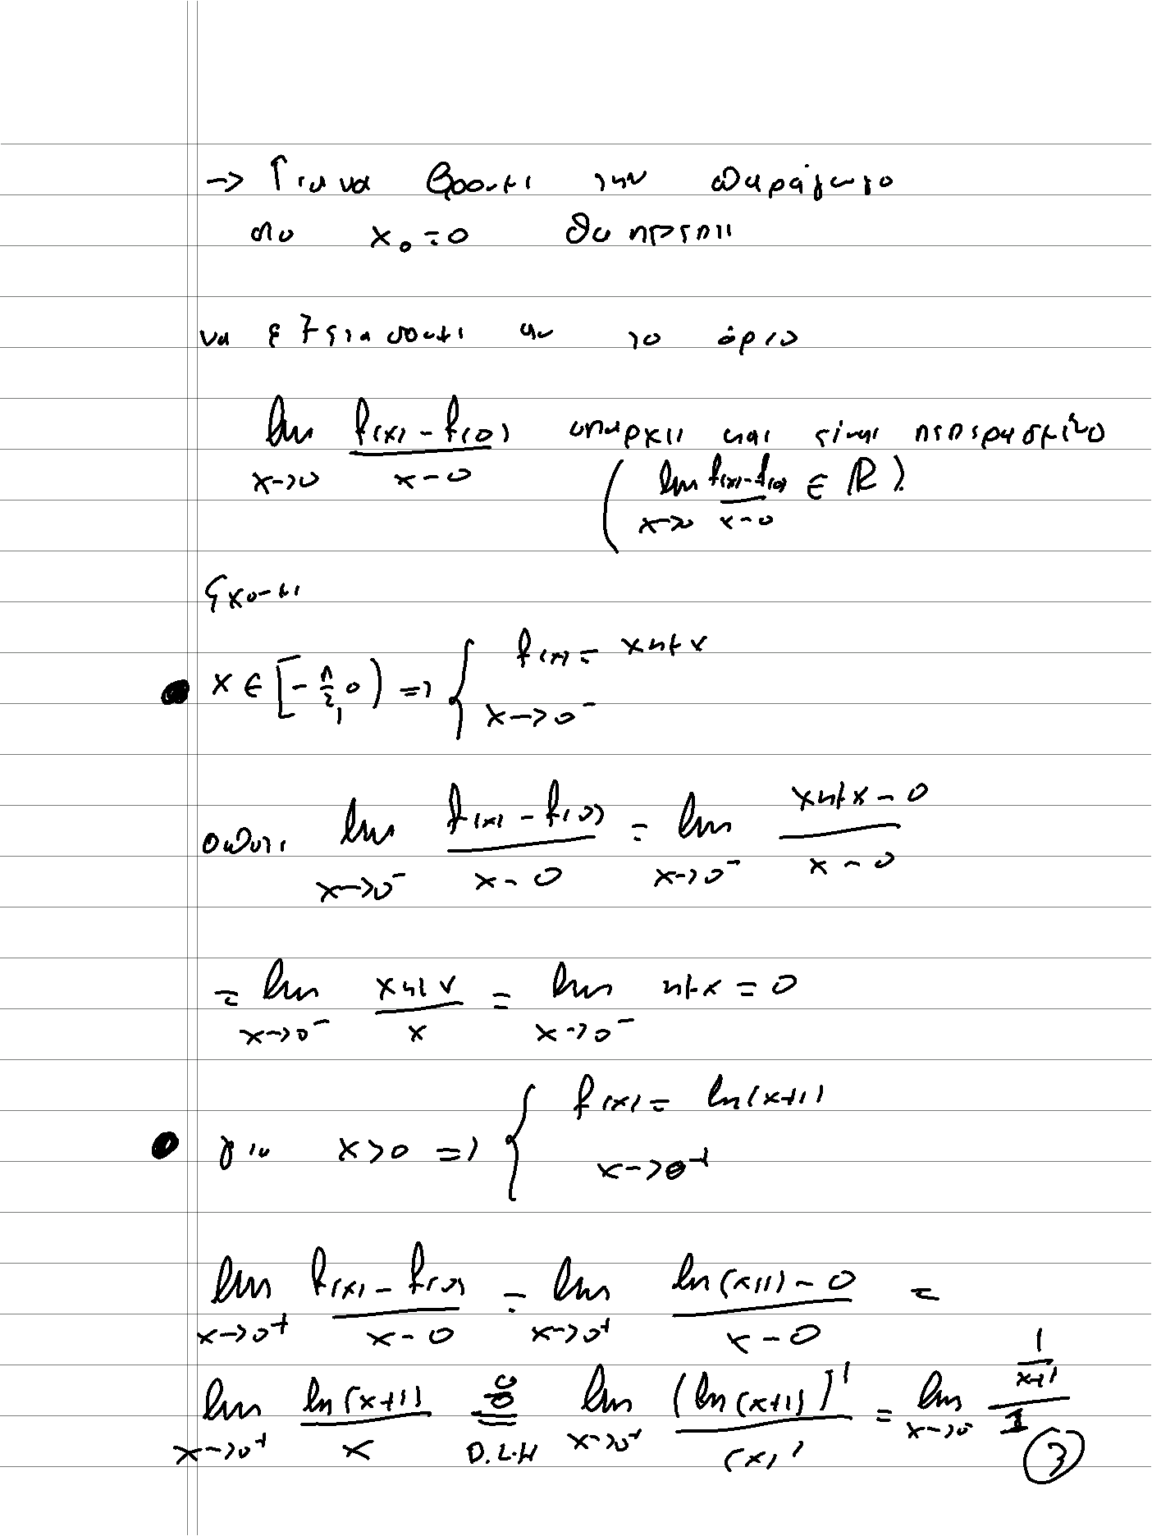 → Για να βρουμε την παράγωγο
στο x₀ = 0 θα πρεπει
να εξετασουμε αν το όριο
lim_{x→0} (f(x) - f(0))/(x-0) υπαρχει και είναι πεπερασμένο
(lim_{x→0} (f(x)-f(0))/(x-0) ∈ ℝ).
Εχουμε
• x ∈ [-π/2, 0) ⇒ { f(x) = xημx
x→0⁻
οποτε lim_{x→0⁻} (f(x) - f(0))/(x-0) = lim_{x→0⁻} (xημx - 0)/(x-0)
= lim_{x→0⁻} xημx/x = lim_{x→0⁻} ημx = 0
• για x>0 ⇒ { f(x) = ln(x+1)
x→0⁺
lim_{x→0⁺} (f(x) - f(0))/(x-0) = lim_{x→0⁺} (ln(x+1) - 0)/(x-0) =
lim_{x→0⁺} ln(x+1)/x =^{0/0}_{D.L.H} lim_{x→0⁺} (ln(x+1))'/(x)' = lim_{x→0⁻} (1/(x+1))/1
③